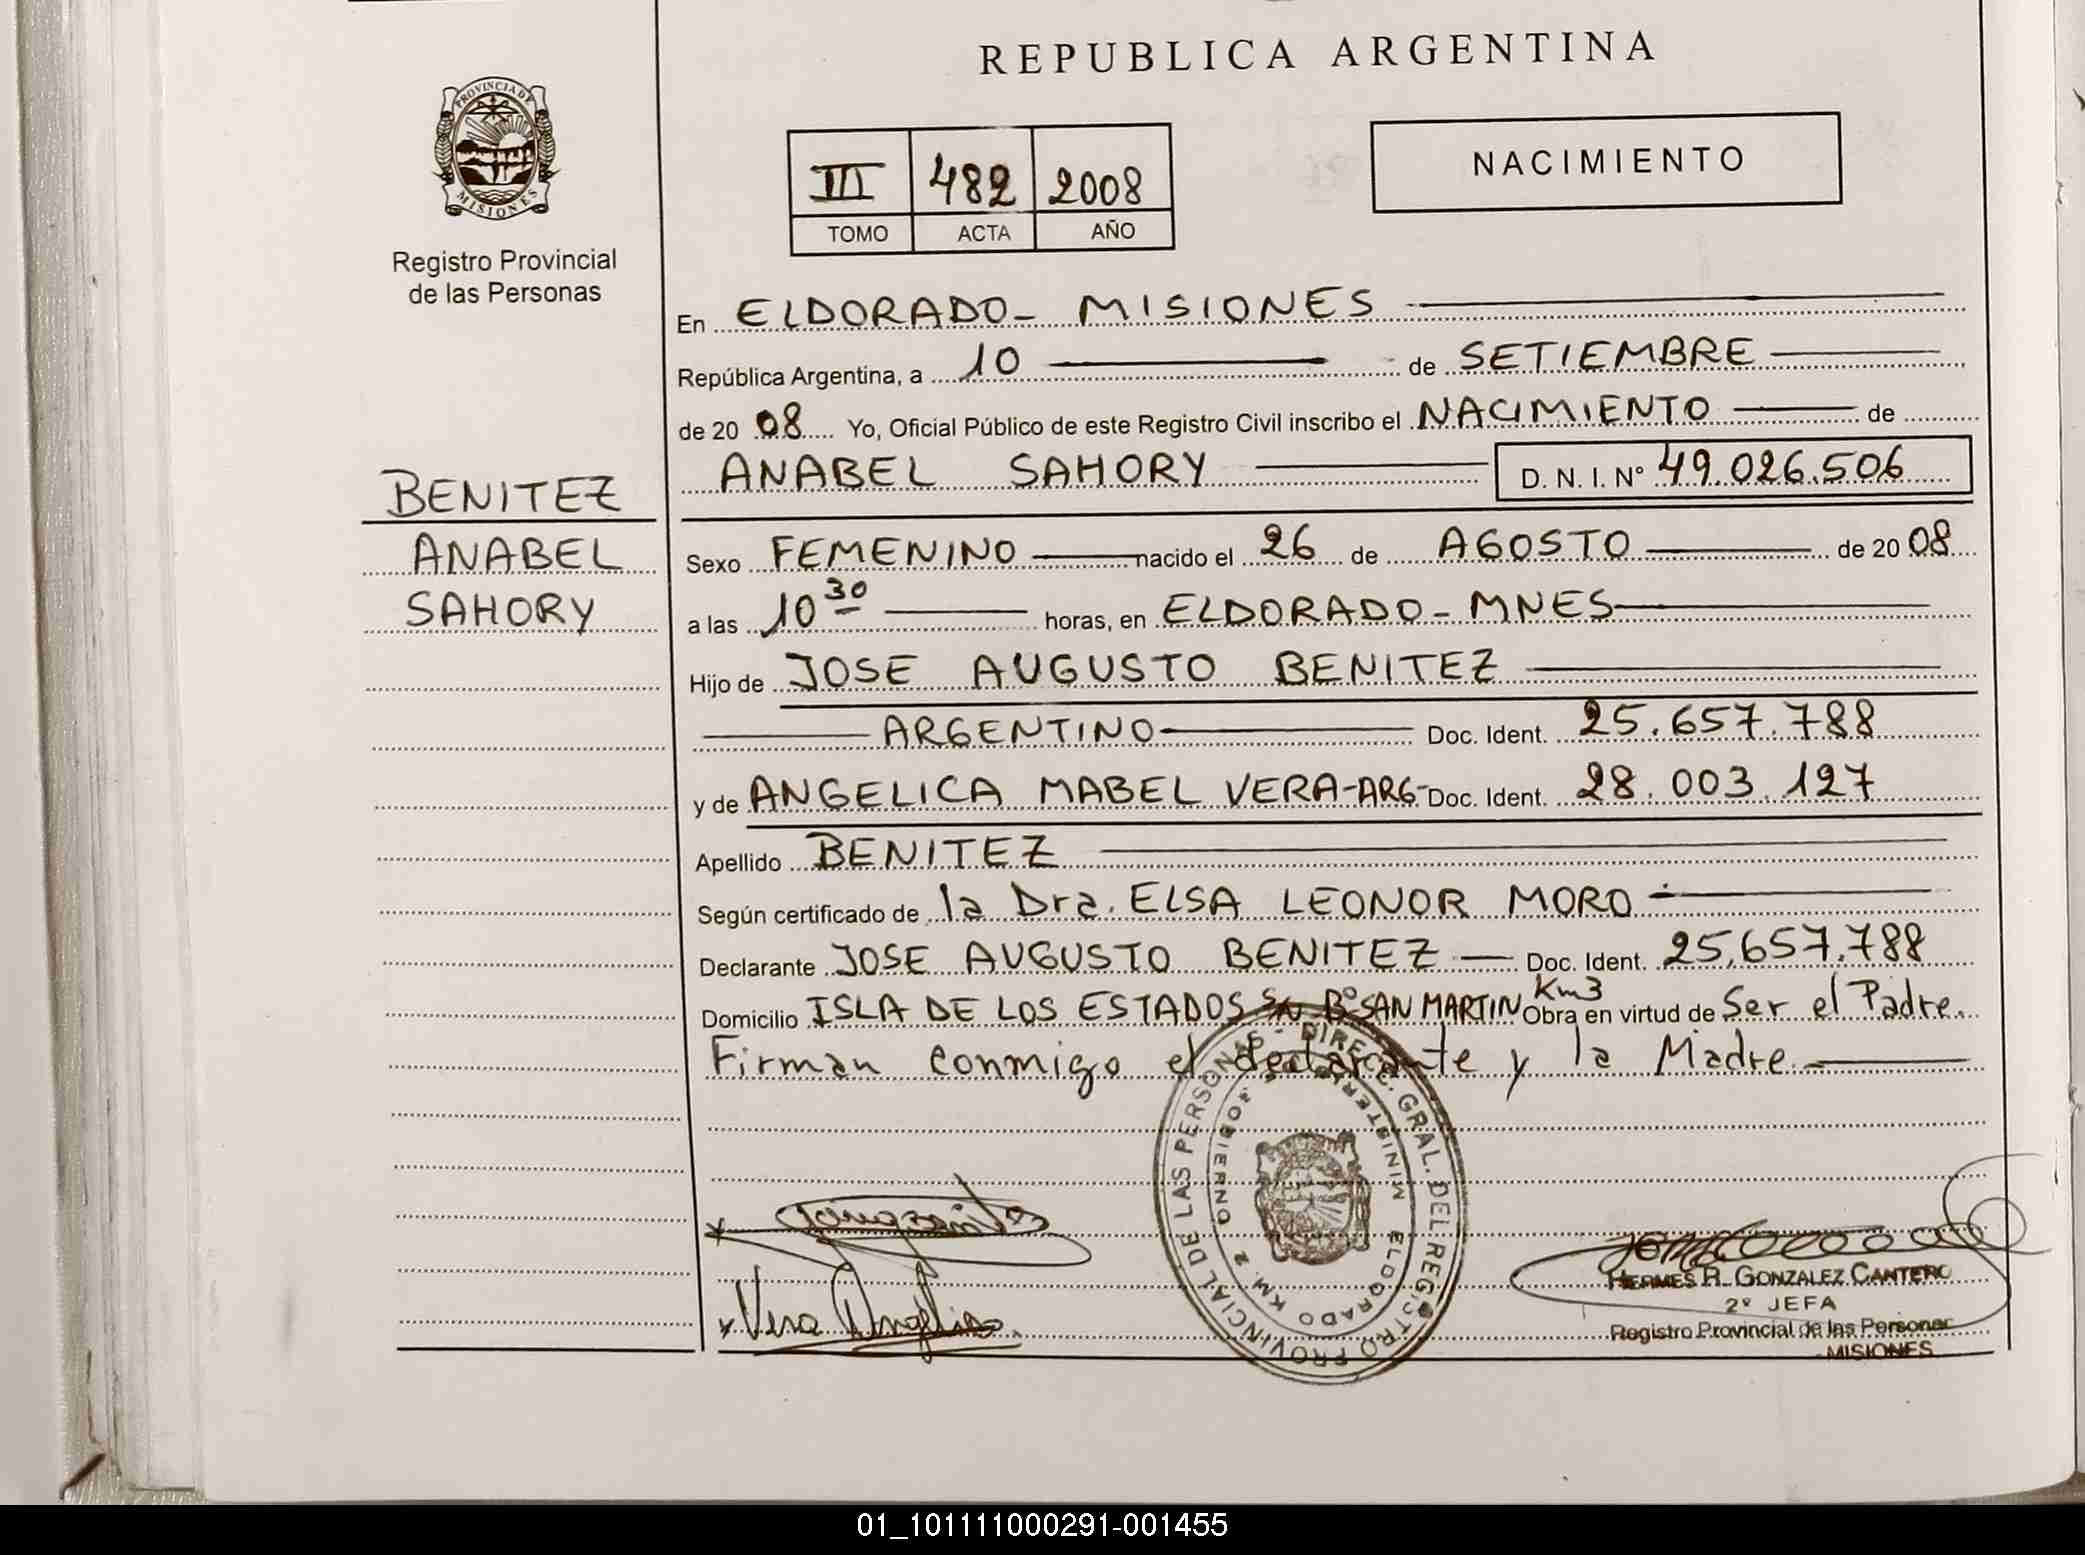 REPUBLICA ARGENTINA
PROVINCIA DE
MISIONES
Registro Provincial
de las Personas
III 482 2008
TOMO ACTA AÑO
NACIMIENTO
En ELDORADO - MISIONES
República Argentina, a 10 de SETIEMBRE
de 20 08 Yo, Oficial Público de este Registro Civil inscribo el NACIMIENTO de
ANABEL SAHORY D. N. I. Nº 49.026.506
BENITEZ
ANABEL
SAHORY
Sexo FEMENINO nacido el 26 de AGOSTO de 20 08
a las 10 30 horas, en ELDORADO - MNES
Hijo de JOSE AUGUSTO BENITEZ
ARGENTINO Doc. Ident. 25.657.788
y de ANGELICA MABEL VERA-ARG- Doc. Ident. 28.003.127
Apellido BENITEZ
Según certificado de la Dra. ELSA LEONOR MORO
Declarante JOSE AUGUSTO BENITEZ Doc. Ident. 25.657.788
Domicilio ISLA DE LOS ESTADOS S/N Bº SAN MARTIN Km3 Obra en virtud de Ser el Padre.
Firman conmigo el declarante y la Madre.
DIREC. GRAL. DEL REGISTRO PROVINCIAL DE LAS PERSONAS
MINISTERIO GOBIERNO
ELDORADO KM. 2
Vera Angelica
HERMES R. GONZALEZ CANTERO
2º JEFA
Registro Provincial de las Personas
MISIONES
01_101111000291-001455